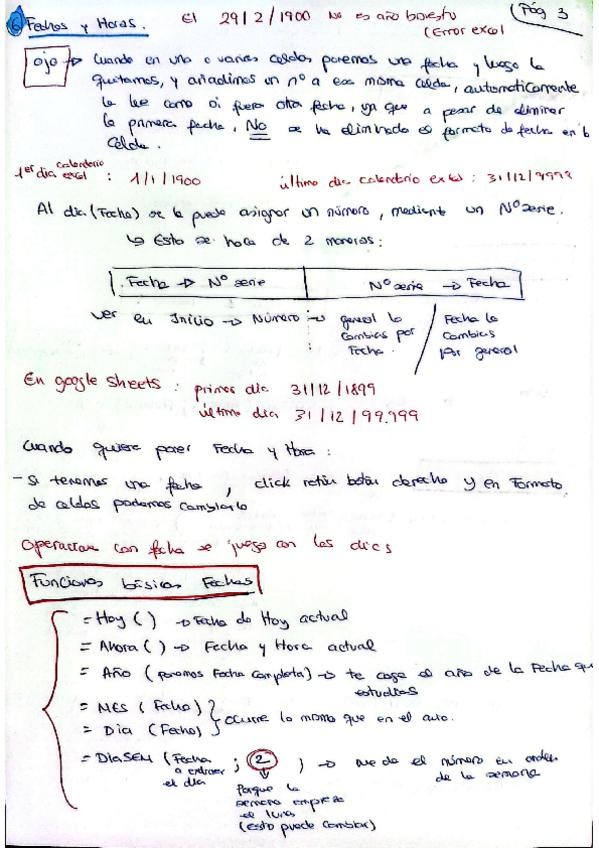 6 Fechas y Horas. El 29/2/1900 No es año bisiesto (Error excel Pág 3
ojo → Cuando en una o varias celdas ponemos una fecha y luego la
quitamos, y añadimos un nº a esa misma celda, automáticamente
la lee como si fuera otra fecha, ya que a pesar de eliminar
la primera fecha, NO se ha eliminado el formato de fecha en la
celda.
1er dia calendario excel : 1/1/1900 último dia calendario excel : 31/12/9999
Al dia (Fecha) se le puede asignar un número, mediante un Nº serie.
↳ Esto se hace de 2 maneras:
Fecha → Nº serie Nº serie → Fecha
Ver en Inicio → Número → general lo cambias por Fecha. / Fecha lo cambias por general
En google Sheets : primer dia 31/12/1899
último dia 31/12/99.999
Cuando quiere poner Fecha y Hora :
- Si tenemos una fecha, click botón derecho y en Formato
de celdas podemos cambiarlo
Operaciones con fecha se juega con los dias
Funciones básicas Fechas
= Hoy ( ) → Fecha de Hoy actual
= Ahora ( ) → Fecha y Hora actual
= Año (ponemos Fecha completa) → te coge el año de la Fecha que
estudies
= MES (Fecha)
= Dia (Fecha) } ocurre lo mismo que en el año.
= DiaSEM (Fecha a extraer el dia ; 2 ) → me da el número en orden
de la semana
Porque la
semana empieza
el lunes
(esto puede cambiar)